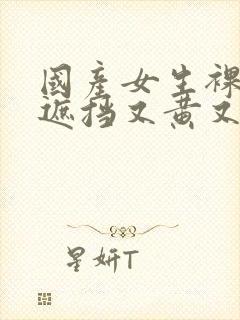 國產女生裸
遮挡又黄又
星妍T